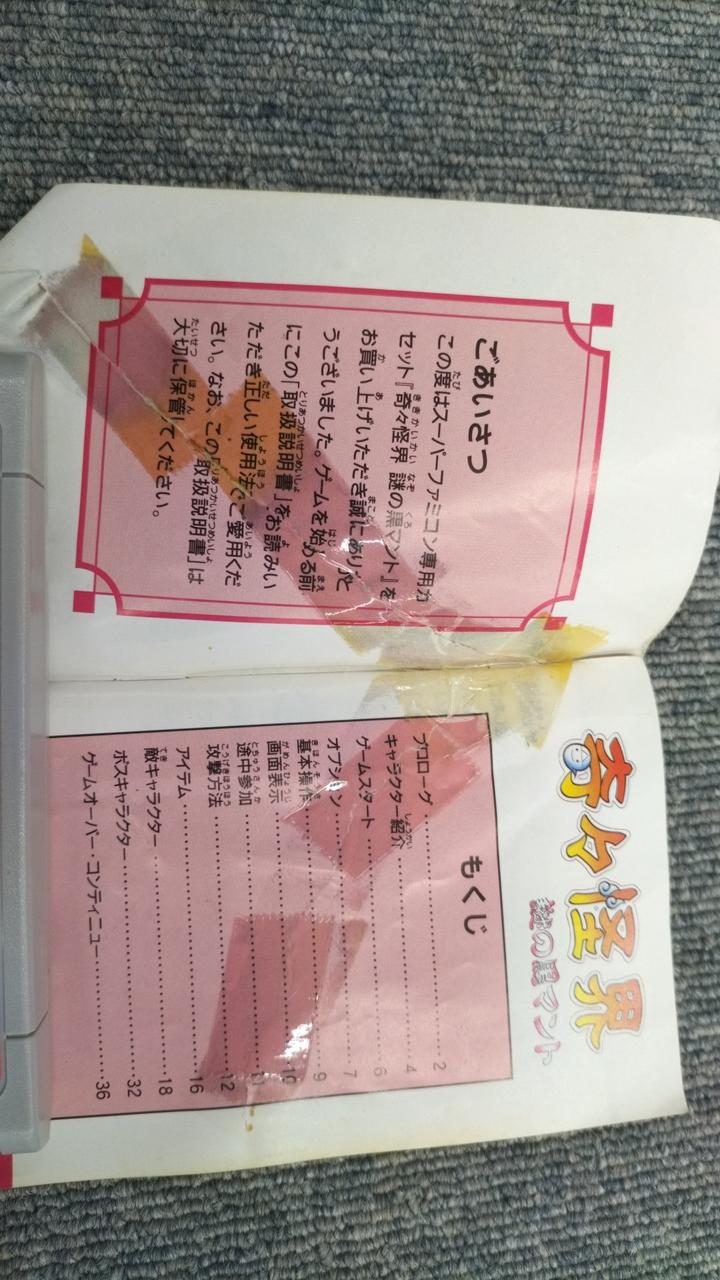 ごあいさつ
この度はスーパーファミコン専用カ
セット『奇々怪界 謎の黒マント』を
お買い上げいただき誠にありがと
うございました。ゲームを始める前
にこの「取扱説明書」をお読みい
ただき正しい使用法でご愛用くだ
さい。なお、この「取扱説明書」は
大切に保管してください。
奇々怪界
謎の黒マント
もくじ
プロローグ……………………2
キャラクター紹介……………………4
ゲームスタート……………………6
オプション……………………7
基本操作……………………9
画面表示……………………10
途中参加……………………11
攻撃方法……………………12
アイテム……………………16
敵キャラクター……………………18
ボスキャラクター……………………32
ゲームオーバー・コンティニュー……………………36